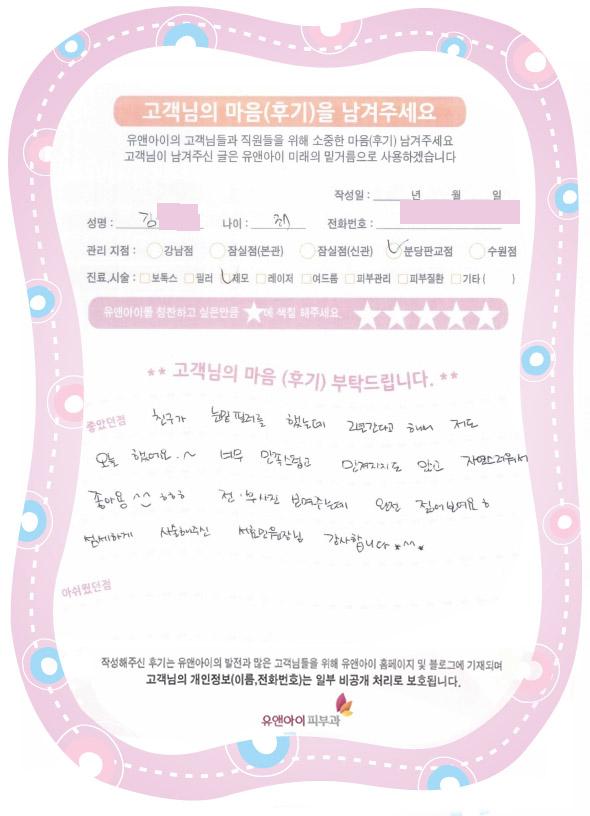 고객님의 마음(후기)을 남겨주세요
유앤아이의 고객님들과 직원들을 위해 소중한 마음(후기) 남겨주세요
고객님이 남겨주신 글은 유앤아이 미래의 밑거름으로 사용하겠습니다
작성일 : 년 월 일
성명 : 김 나이 : 전화번호 :
관리 지점 : 강남점 잠실점(본관) 잠실점(신관) 분당판교점 수원점
진료,시술 : 보톡스 필러 제모 레이저 여드름 피부관리 피부질환 기타 ( )
유앤아이를 칭찬하고 싶은만큼 ★에 색칠 해주세요. ★★★★★
** 고객님의 마음 (후기) 부탁드립니다. **
좋았던점 친구가 눈밑필러를 했는데 2년간다고 해서 저도
오늘 했어요.~ 너무 만족스럽고 만져지지도 않고 자연스러워서
좋아용 ^^ ㅎㅎㅎ 전·후사진 보여주는데 완전 젊어보여요ㅎ
섬세하게 시술해주신 원장님 감사합니다 *^^*
아쉬웠던점
작성해주신 후기는 유앤아이의 발전과 많은 고객님들을 위해 유앤아이 홈페이지 및 블로그에 기재되며
고객님의 개인정보(이름,전화번호)는 일부 비공개 처리로 보호됩니다.
유앤아이피부과